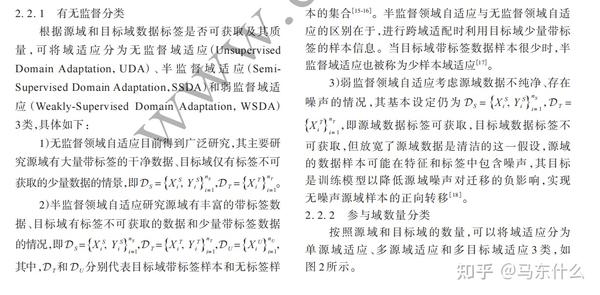 2.2.1 有无监督分类
根据源域和目标域数据标签是否可获取及其质
量，可将域适应分为无监督域适应（Unsupervised
Domain Adaptation, UDA）、半监督域适应（Semi-
Supervised Domain Adaptation,SSDA）和弱监督域适
应（Weakly-Supervised Domain Adaptation, WSDA）
3类,具体如下：
1)无监督领域自适应目前得到广泛研究,其主要研
究源域有大量带标签的干净数据、目标域仅有标签不可
获取的少量数据的情景,即𝒟_S={X_i^S, Y_i^S}_{i=1}^{n_S},𝒟_T={X_i^T}_{i=1}^{n_T}。
2)半监督领域自适应研究源域有丰富的带标签数
据、目标域有标签不可获取的数据和少量带标签数据
的情况,即𝒟_S={X_i^S, Y_i^S}_{i=1}^{n_S},𝒟_T={X_i^T, Y_i^T}_{i=1}^{n_T},𝒟_U={X_i^U}_{i=1}^{n_U},
其中,𝒟_T和𝒟_U分别代表目标域带标签样本和无标签样
本的集合[15-16]。半监督领域自适应与无监督领域自适
应的区别在于,进行跨域适配时利用目标域少量带标
签的样本信息。当目标域带标签数据样本很少时,半
监督域适应也被称为少样本域适应[17]。
3)弱监督领域自适应考虑源域数据不纯净、存在
噪声的情况,其基本设定仍为𝒟_S={X_i^S, Y_i^S}_{i=1}^{n_S},𝒟_T=
{X_i^T}_{i=1}^{n_T},即源域数据标签可获取,目标域数据标签不
可获取,但放宽了源域数据是清洁的这一假设,源域
的数据样本可能在特征和标签中包含噪声,其目标
是训练模型以降低源域噪声对迁移的负影响,实现
无噪声源域样本的正向转移[18]。
2.2.2 参与域数量分类
按照源域和目标域的数量,可以将域适应分为
单源域适应、多源域适应和多目标域适应3类,如
图2所示。
知乎 @马东什么